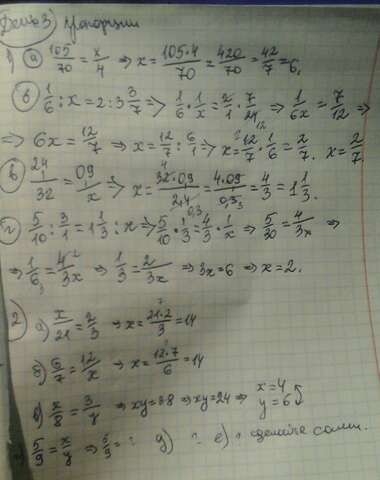 День 3) пропорции
1) а) 105/70 = x/4 ⇒ x = 105·4/70 = 420/70 = 42/7 = 6.
б) 1/6 : x = 2 : 3 3/7 ⇒ 1/6 · 1/x = 2/1 · 7/24 ⇒ 1/6x = 7/12 ⇒
⇒ 6x = 12/7 ⇒ x = 12/7 : 6/1 ⇒ x = 12/7 · 1/6 = 2/7. x = 2/7.
в) 24/32 = 0,9/x ⇒ x = 32·0,9/2,4 = 4·0,9/0,3 = 4/3 = 1 1/3.
г) 5/10 : 3/1 = 1 1/3 : x ⇒ 5/10 · 1/3 = 4/3 · 1/x ⇒ 5/30 = 4/3x ⇒
⇒ 1/6 = 4/3x ⇒ 1/3 = 2/3x ⇒ 3x = 6 ⇒ x = 2.
2 а) x/21 = 2/3 ⇒ x = 21·2/3 = 14
б) 6/7 = 12/x ⇒ x = 12·7/6 = 14
в) x/8 = 3/y ⇒ xy = 3·8 ⇒ xy = 24 ⇒ x = 4 y = 6
г) 5/9 = x/y ⇒ 5/9 = ? д) ? е) сделайте сами.